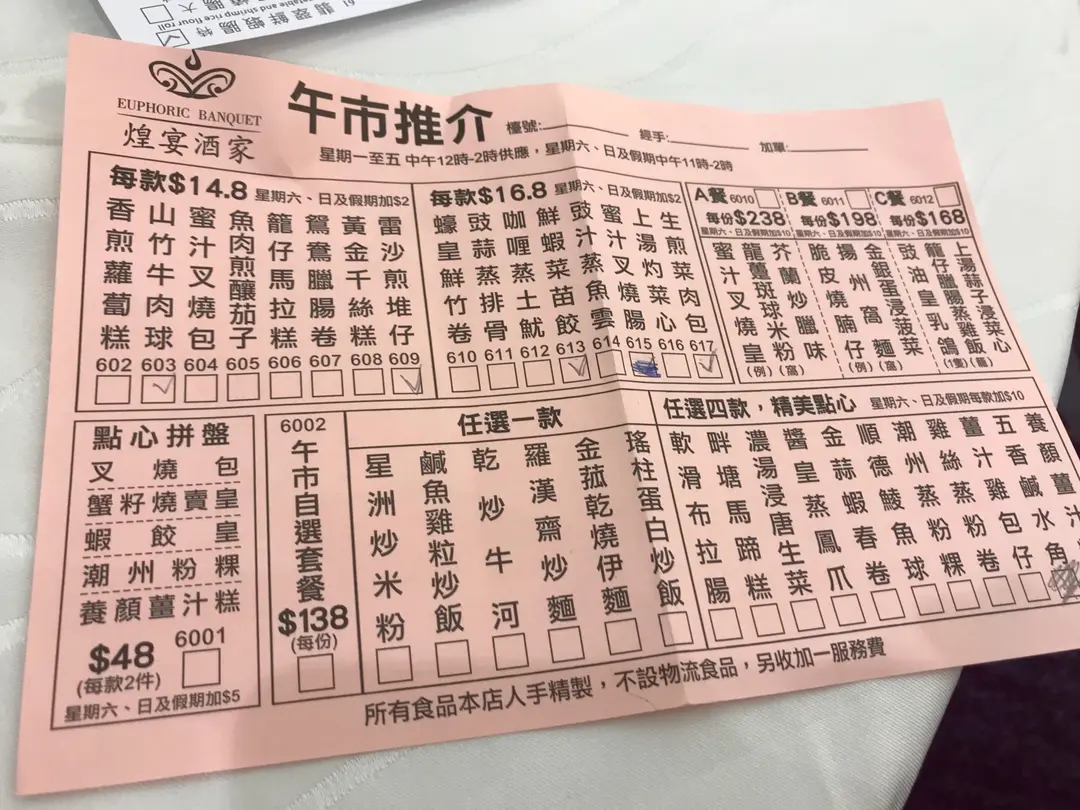 翡翠鮮蝦腸
vegetable and shrimp rice flour roll
EUPHORIC BANQUET
煌宴酒家
午市推介
檯號:
經手:
加單:
星期一至五 中午12時-2時供應，星期六、日及假期中午11時-2時
每款$14.8 星期六、日及假期加$2
香煎蘿蔔糕
山竹牛肉球
蜜汁叉燒包
魚肉煎釀茄子
籠仔馬拉糕
鴛鴦臘腸卷
黃金千絲糕
雷沙煎堆仔
602 603 604 605 606 607 608 609
每款$16.8 星期六、日及假期加$2
蠔皇鮮竹卷
豉蒜蒸排骨
咖喱蒸土魷
鮮蝦菜苗餃
豉汁蒸魚雲
蜜汁叉燒腸
上湯灼菜心
生煎菜肉包
610 611 612 613 614 615 616 617
A餐 6010
每份$238
星期六、日及假期加$10
蜜汁叉燒皇
(例)
龍躉斑球米粉
(窩)
芥蘭炒臘味
B餐 6011
每份$198
星期六、日及假期加$10
脆皮燒腩仔
(例)
揚州窩麵
(窩)
金銀蛋浸菠菜
C餐 6012
每份$168
星期六、日及假期加$10
豉油皇乳鴿
(1隻)
籠仔臘腸蒸雞飯
(籠)
上湯蒜子浸菜心
點心拼盤
叉燒包
蟹籽燒賣皇
蝦餃皇
潮州粉粿
養顏薑汁糕
$48
(每款2件)
6001
星期六、日及假期加$5
6002
午市自選套餐
$138
(每份)
任選一款
星洲炒米粉
鹹魚雞粒炒飯
乾炒牛河
羅漢齋炒麵
金菰乾燒伊麵
瑤柱蛋白炒飯
任選四款，精美點心 星期六、日及假期每款加$10
軟滑布拉腸
畔塘馬蹄糕
濃湯浸唐生菜
醬皇蒸鳳爪
金蒜蝦春卷
順德鯪魚球
潮州蒸粉粿
雞絲蒸粉卷
薑汁雞包仔
五香鹹水角
養顏薑汁
所有食品本店人手精製，不設物流食品，另收加一服務費